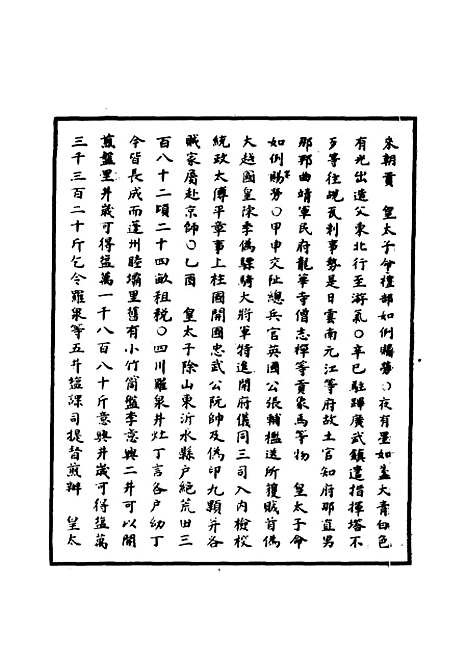 來朝貢　皇太子命禮部如例賜賚○夜有星如盞大青白色
有光出造父東北行至游氣○辛巳駐蹕廣武鎮遣指揮塔不
歹等往覘瓦剌事勢是日雲南元江等府故土官知府那直男
那邦曲靖軍民府龍華寺僧志禪等貢象馬等物　皇太子命
如例賜賚○甲申交阯總兵官英國公張輔檻送所獲賊首偽
大越國皇陳季偽驃騎大將軍特進開府儀同三司入內檢校
統政太傅平章事上柱國開國忠武公阮帥及偽印九顆并各
賊家屬赴京師○乙酉　皇太子除山東沂水縣戶絕荒田三
百八十二頃二十四畝租稅○四川羅泉井灶丁言各戶幼丁
今皆長成而蓬州睦壩里舊有小竹筒鹽李意興二井可以開
煎鹽里井歲可得鹽萬一千八百八十斤意興井歲可得鹽萬
三千三百二十斤乞令羅泉等五井鹽課司提督煎辦　皇太